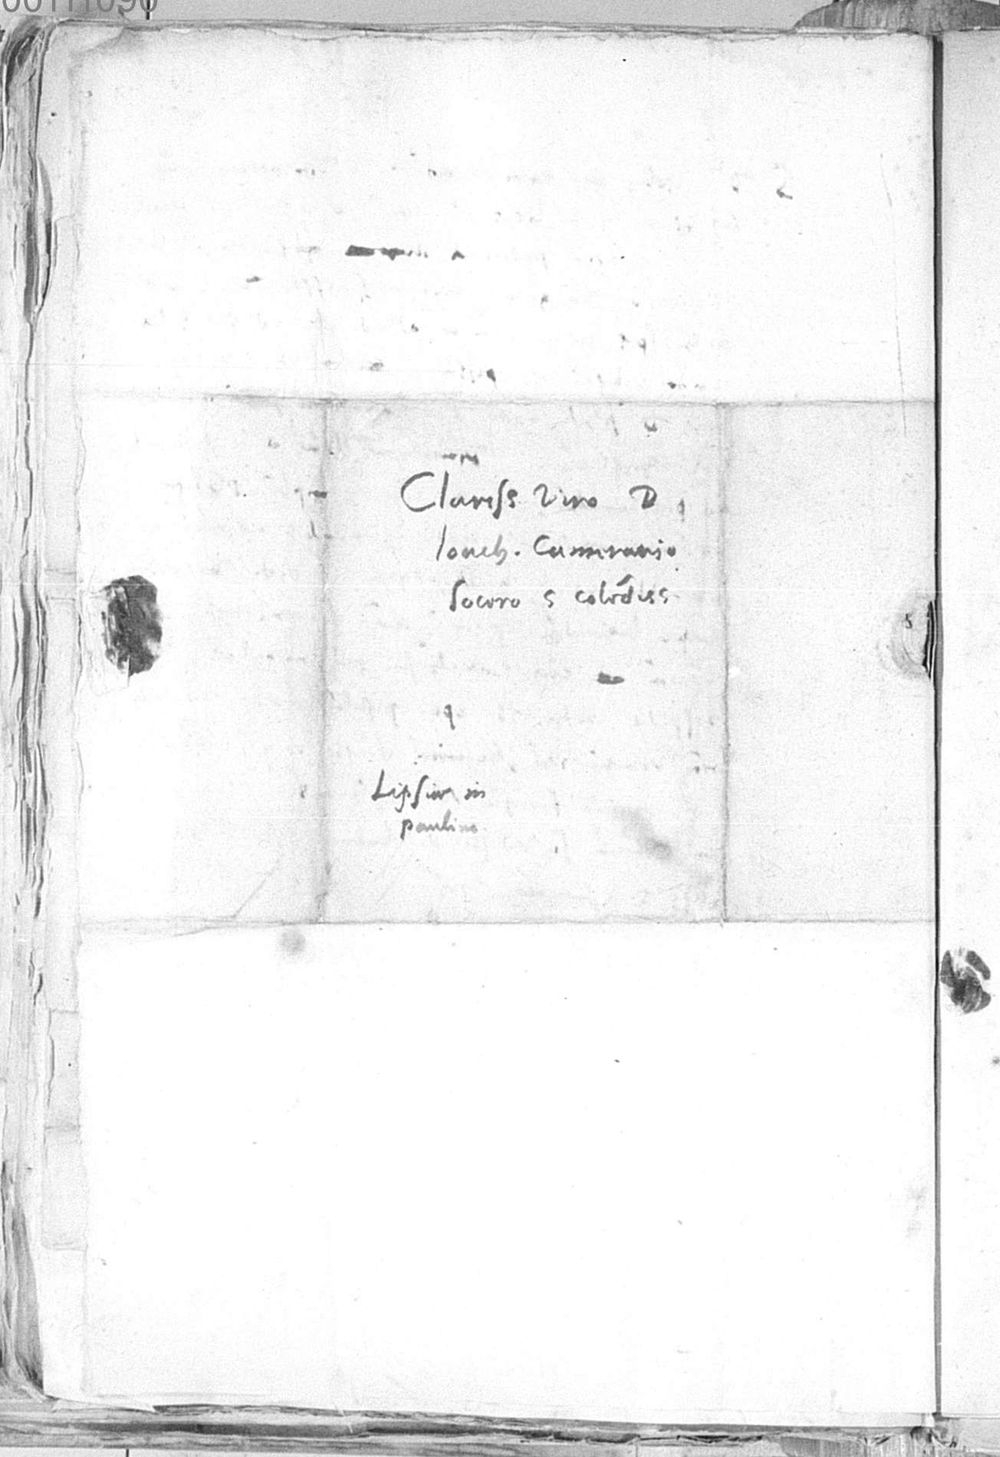 00111090
Clariss Viro D
Ioach. Camerario
Socero s colēdiss
Lipsiae in
paulino